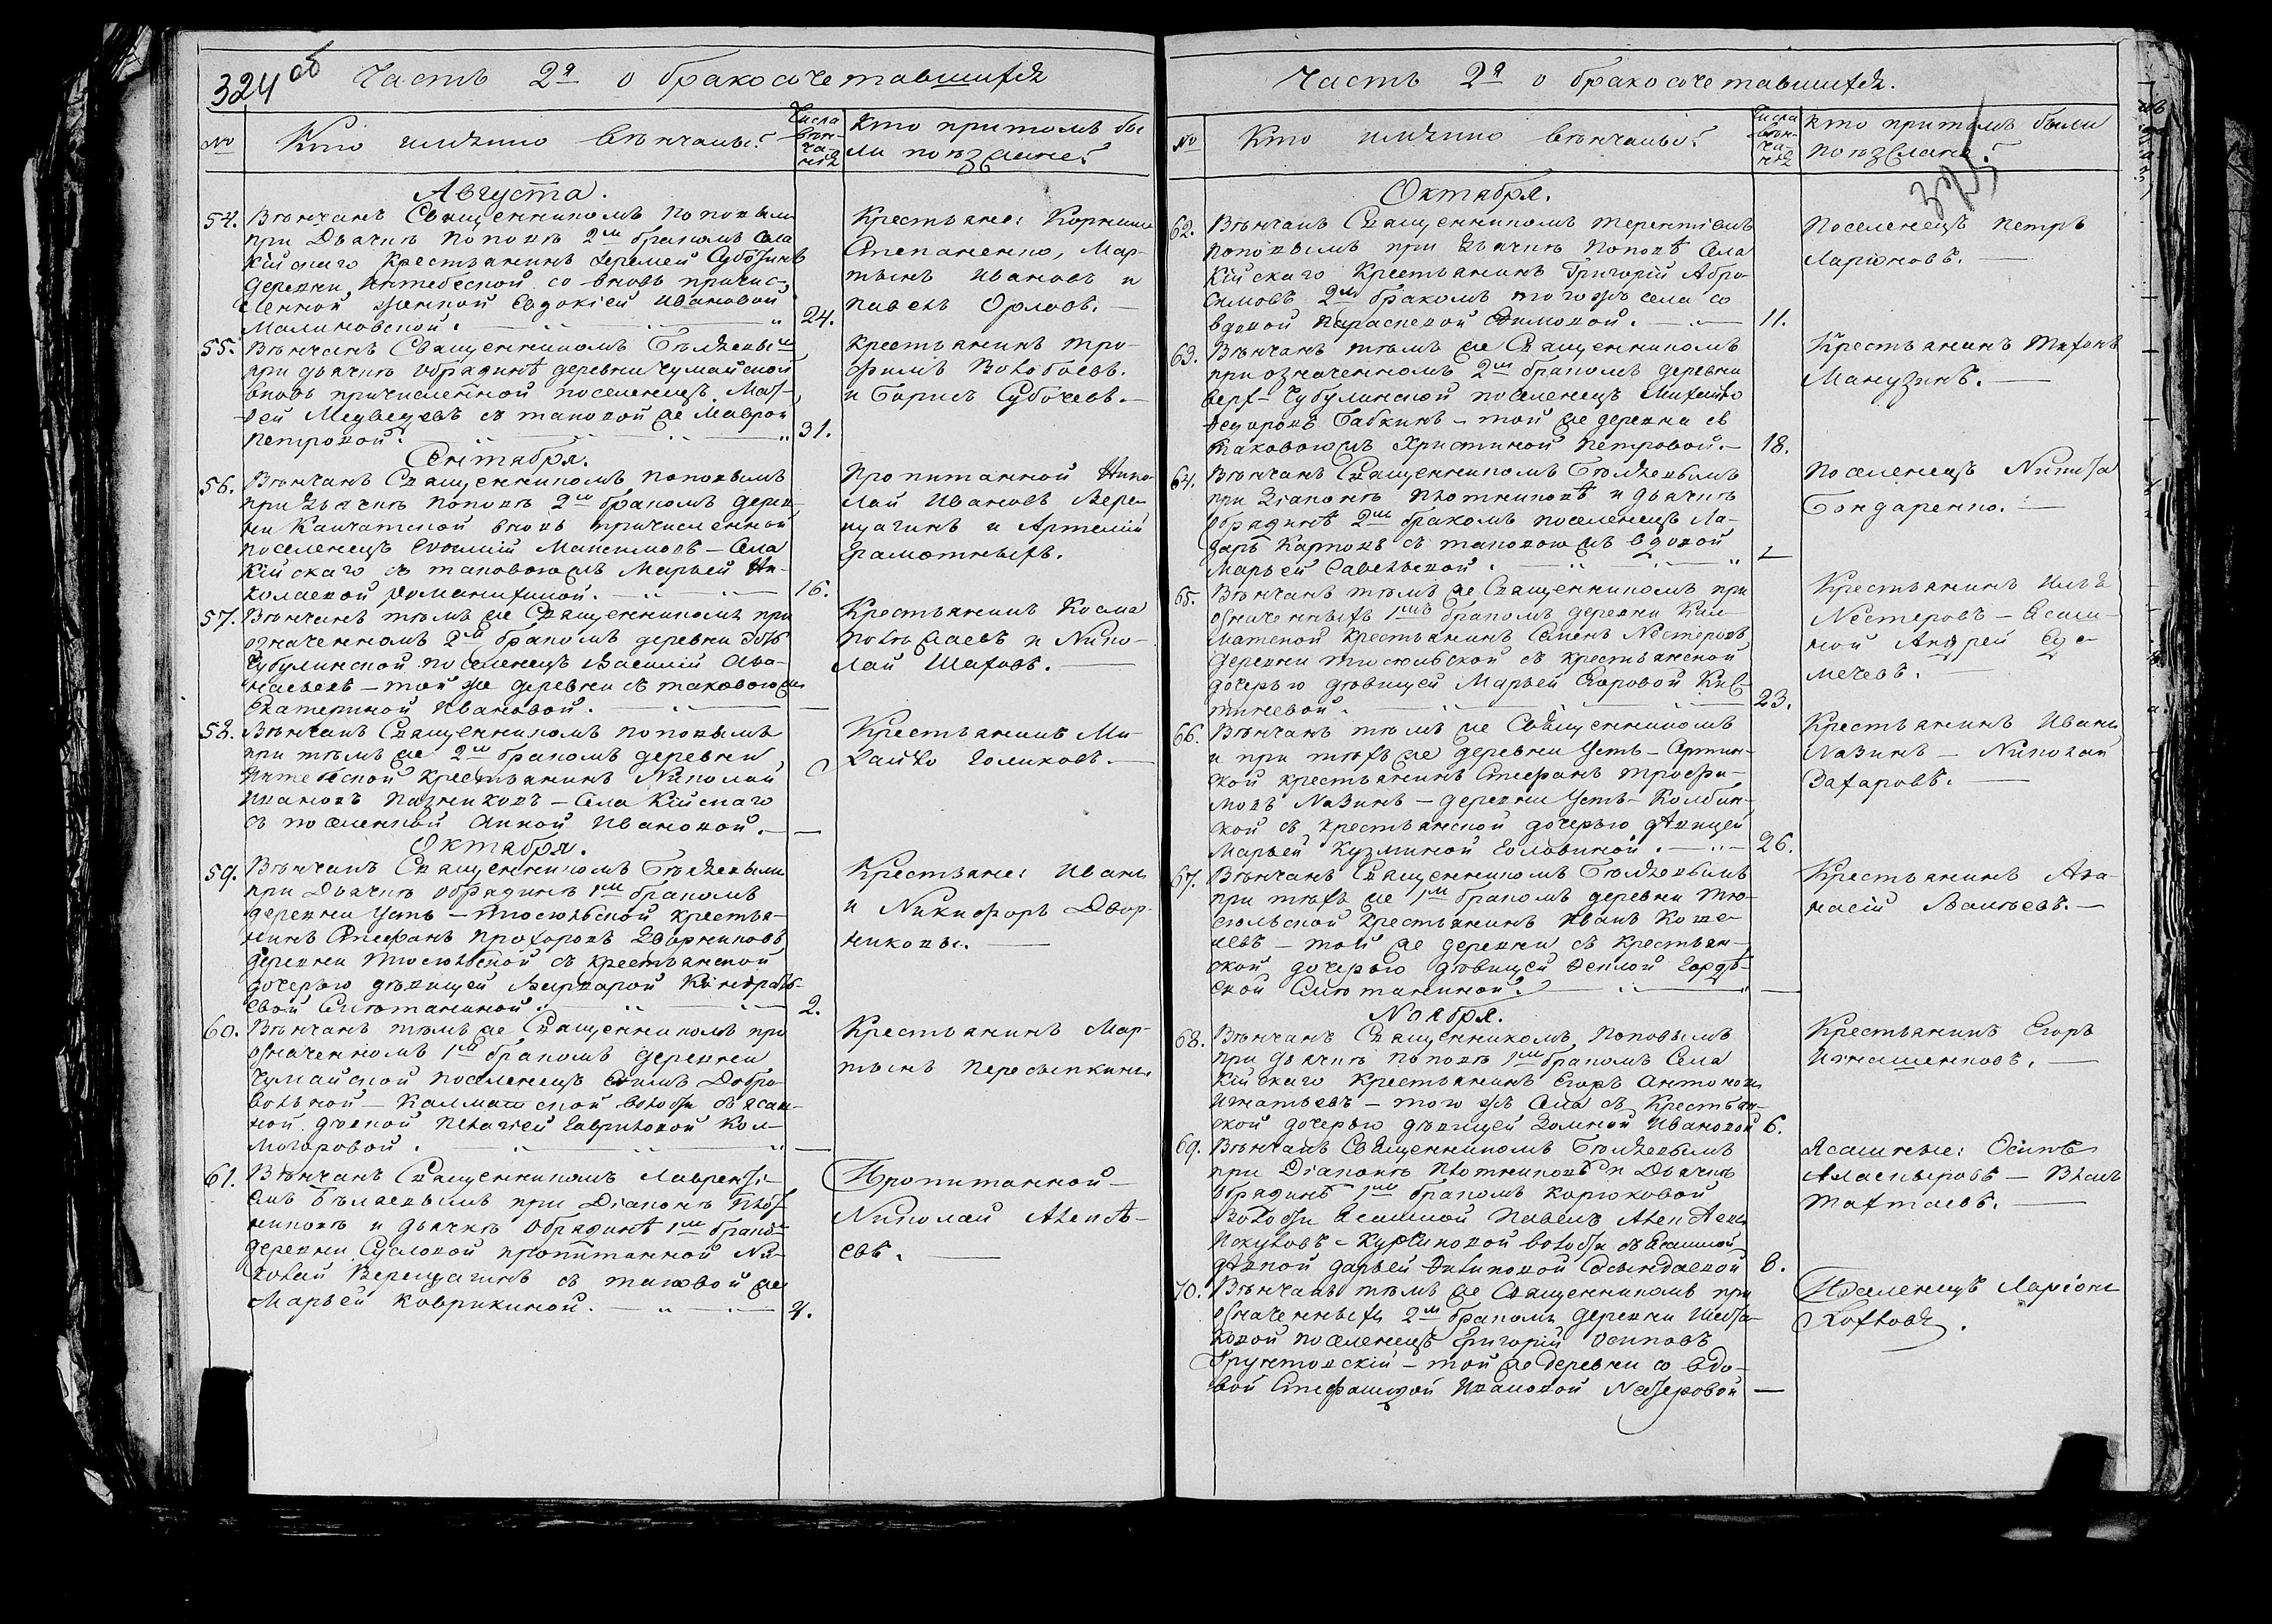 324 об
Часть 2я о бракосочетавшихся
№
Кто именно вѣнчаны?
Числа вѣн-
ча-
нія
Кто притомъ бы-
ли поѣзжане?
Августа.
54. Вѣнчанъ Священникомъ Поповымъ
при Дьячкѣ Поповѣ 2мъ бракомъ Села
Кійскаго Крестьянинъ Еремей Субо
деревни Интебеской со вновь причис-
ленной женкой Евдокіей Ивановой
Малиновской. 24.
Крестьяне: Корнило
Степаненко, Мар-
тынъ Ивановъ и
Павелъ Орловъ.
55. Вѣнчанъ Священникомъ Бѣляевымъ
при дьячкѣ Обрядинѣ деревни Чумайской
вновь причисленной поселенецъ Мат-
ѳей Медведевъ съ таковой же Маврой
Петровой. 31.
Крестьянинъ Тро-
фимъ Волобоевъ.
и Борисъ Субочевъ.
Сентября.
56. Вѣнчанъ Священникомъ Поповымъ
при Дьячкѣ Поповѣ 2мъ бракомъ дерев-
ни Камчатской вновь причисленной
поселенецъ Максимовъ – Села
Кійскаго съ таковоюжъ Марьей Ни-
колаевой Романихиной. 16.
Пропитанной Нико-
лай Ивановъ Вере-
щагинъ и Артемій
Грамотныхъ.
57. Вѣнчанъ тѣмъ же Священникомъ при
означенномъ 2мъ бракомъ деревни
Чубулинской поселенецъ Василій Аѳа-
насьевъ – той же деревни съ таковоюжъ
Екатериной Ивановой. —
Крестьянинъ Косма
и Нико-
лай Шаховъ.
58. Вѣнчанъ Священникомъ Поповымъ
при тѣмъ же 2мъ бракомъ деревни
Интебеской Крестьянинъ Николай
Ивановъ – Села Кійскаго
съ поселенкой Анной Ивановой. —
Крестьянинъ Ми-
хайло Голиковъ.
Октября.
59. Вѣнчанъ Священникомъ Бѣляевымъ
при Дьячкѣ Обрядинѣ 1мъ бракомъ
деревни Усть – Тюсюльской крестья-
нинъ Стефанъ Прохоровъ Дворниковъ
деревни Тюсюльской съ крестьянской
дочерью дѣвицей Варварой Кондрать-
евой Сиютаниной. 2.
Крестьяне: Иванъ
и Никифоръ Двор-
никовы.
60. Вѣнчанъ тѣмъ же Священникомъ при
означенномъ 1мъ бракомъ деревни
Чумайской поселенецъ Ефимъ Добро-
вольной – Калмацкой волости съ ясаш-
ной дѣвкой Пелагіей Гавриловой Кол-
могоровой. —
Крестьянинъ Мар-
тынъ Пересыпкинъ.
61. Вѣнчанъ Священникомъ Лаврентіе-
мъ Бѣляевымъ при Діаконѣ Плот-
никовѣ и дьячкѣ Обрядинѣ 1мъ брако-
деревни Сусловой пропитанной Ни-
колай Верещагинъ съ таковой же
Марьей Коврикиной. 4.
Пропитанной
Николай Алексѣ-
евъ.
Часть 2я о бракосочетавшихся.
№
Кто именно вѣнчаны?
Числа вѣн-
ча-
нія
Кто притомъ были
поѣзжане?
325
Октября.
62. Вѣнчанъ Священникомъ Терентіемъ
Поповымъ при Дьячкѣ Поповѣ Села
Кійскаго Крестьянинъ Григорій Абро-
симовъ 2мъ бракомъ того жъ села со
вдовой Парасковой Ѳимовой. 11.
Поселенецъ Петръ
Ларіоновъ.
63. Вѣнчанъ тѣмъ же Священникомъ
при означенномъ 2мъ бракомъ деревни
верх – Чубулинской поселенецъ Михайло
Ѳедоровъ Бабкинъ – той же деревни съ
таковоюжъ Христиной Петровой. 18.
Крестьянинъ Тихонъ
Манузинъ.
64. Вѣнчанъ Священникомъ Бѣляевымъ
при Діаконѣ Плотниковѣ и дьячкѣ
Обрядинѣ 2мъ бракомъ поселенецъ Ла-
заръ Карповъ съ таковоюжъ вдовой
Марьей Савельевой. —
Поселенецъ Никита
Бондаренко.
65. Вѣнчанъ тѣмъ же Священникомъ при
означенныхъ 1мъ бракомъ деревни Кам-
чатской Крестьянинъ Семенъ Нестеровъ
деревни Тюсюльской съ крестьянской
дочерью дѣвицей Марьей Егоровой
23.
Крестьянинъ Илья
Нестеровъ – Ясаш-
ной Андрей
мечевъ.
66. Вѣнчанъ тѣмъ же Священникомъ
и при тѣхъ же деревни Усть – Сертин-
ской крестьянинъ Стефанъ Трофи-
мовъ Назинъ – деревни Усть – Колбин-
ской съ крестьянской дочерью дѣвицей
Марьей Кузминой Головиной. 26.
Крестьянинъ Иванъ
Назинъ – Николай
Захаровъ.
67. Вѣнчанъ Священникомъ Бѣляевымъ
при тѣхъ же 1мъ бракомъ деревни Тю-
сюльской Крестьянинъ Иванъ Коже-
невъ – той же деревни съ крестьян-
ской дочерью дѣвицей Ѳеклой Гордѣ-
евой Сиютаниной. —
Крестьянинъ Аѳа-
насій Васильевъ.
Ноября.
68. Вѣнчанъ Священникомъ Поповымъ
при дьячкѣ Поповѣ 1мъ бракомъ Села
Кійскаго Крестьянинъ Егоръ Антоновъ
Игнатьевъ – того жъ Села съ Крестьян-
ской дочерью дѣвицей Домной Ивановой 6.
Крестьянинъ Егоръ
Игнашенковъ.
69. Вѣнчанъ Священникомъ Бѣляевымъ
при Діаконѣ Плотниковѣ и Дьячкѣ
Обрядинѣ 1мъ бракомъ Корюковой
Волости Ясашной Павелъ Алексѣевъ
– Курчиковой волости съ Ясашной
дѣвкой Дарьей 8.
Ясашные: Осипъ
– Власъ
Тахтаевъ.
70. Вѣнчанъ тѣмъ же Священникомъ при
означенныхъ 2мъ бракомъ деревни Шеста-
ковой поселенецъ Григорій Осиповъ
Грунтовскій – той же деревни со вдо-
вой Стефанидой Ивановой Нестеровой —
Поселенецъ Ларіонъ
Козловъ.